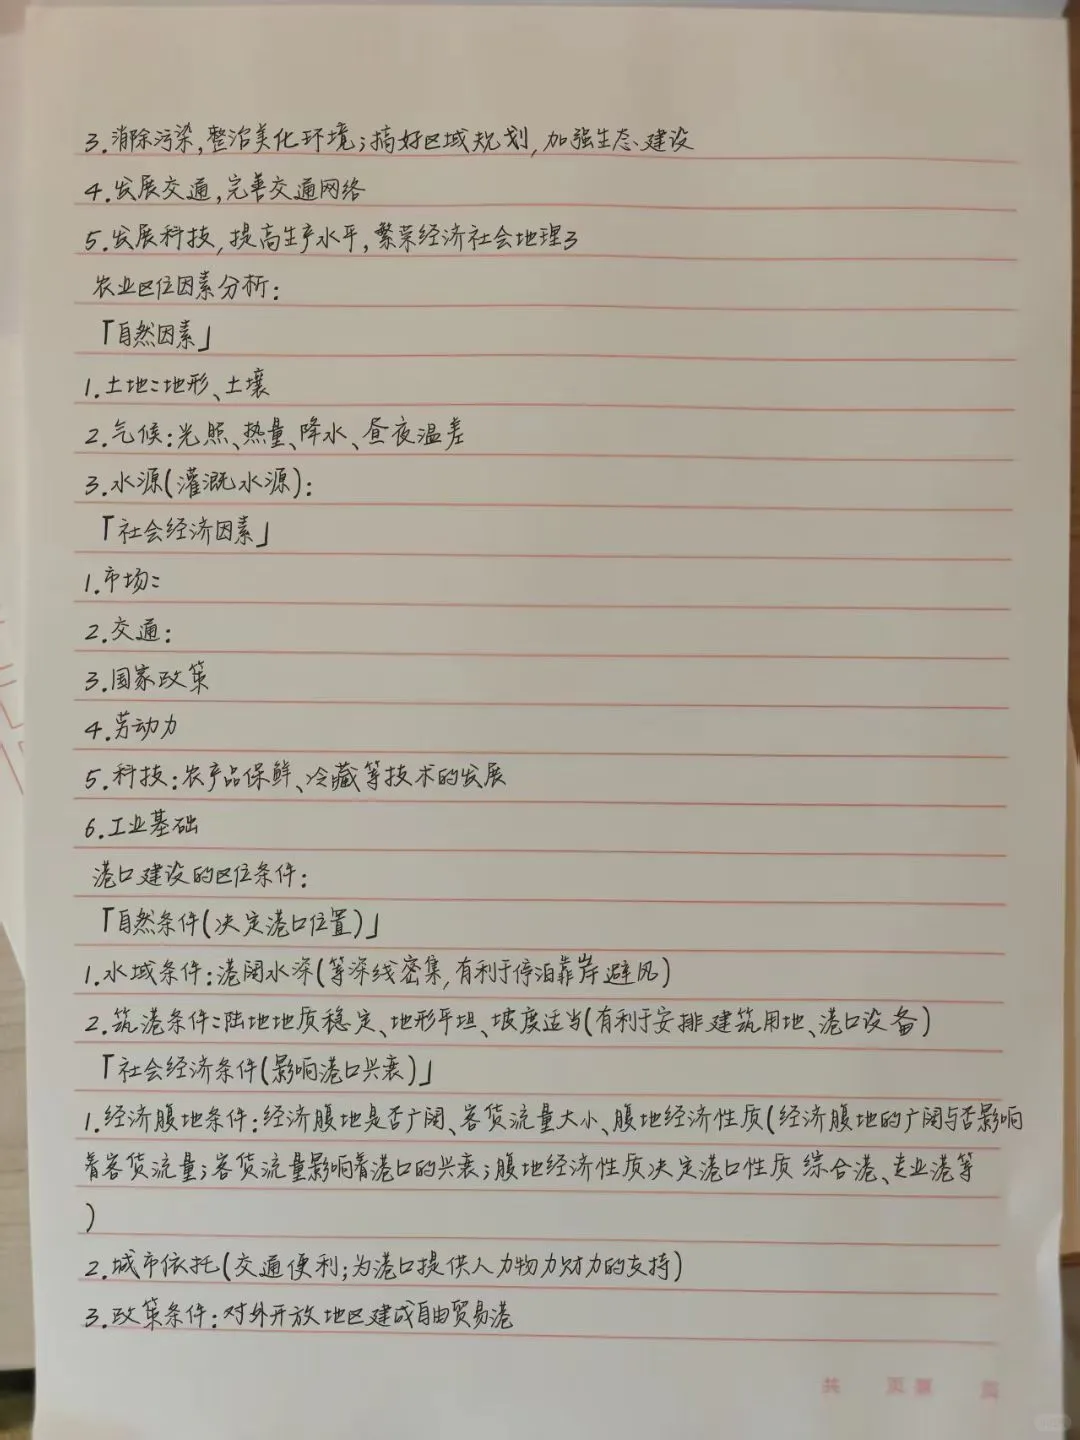 3.消除污染,整治美化环境;搞好区域规划,加强生态建设
4.发展交通,完善交通网络
5.发展科技,提高生产水平,繁荣经济社会地理3
农业区位因素分析:
「自然因素」
1.土地:地形、土壤
2.气候:光照、热量、降水、昼夜温差
3.水源(灌溉水源):
「社会经济因素」
1.市场:
2.交通:
3.国家政策
4.劳动力
5.科技:农产品保鲜、冷藏等技术的发展
6.工业基础
港口建设的区位条件:
「自然条件(决定港口位置)」
1.水域条件:港阔水深(等深线密集,有利于停泊靠岸避风)
2.筑港条件:陆地地质稳定、地形平坦、坡度适当(有利于安排建筑用地、港口设备)
「社会经济条件(影响港口兴衰)」
1.经济腹地条件:经济腹地是否广阔、客货流量大小、腹地经济性质(经济腹地的广阔与否影响
着客货流量;客货流量影响着港口的兴衰;腹地经济性质决定港口性质 综合港、专业港等
)
2.城市依托(交通便利;为港口提供人力物力财力的支持)
3.政策条件:对外开放地区建成自由贸易港
共 页第 页